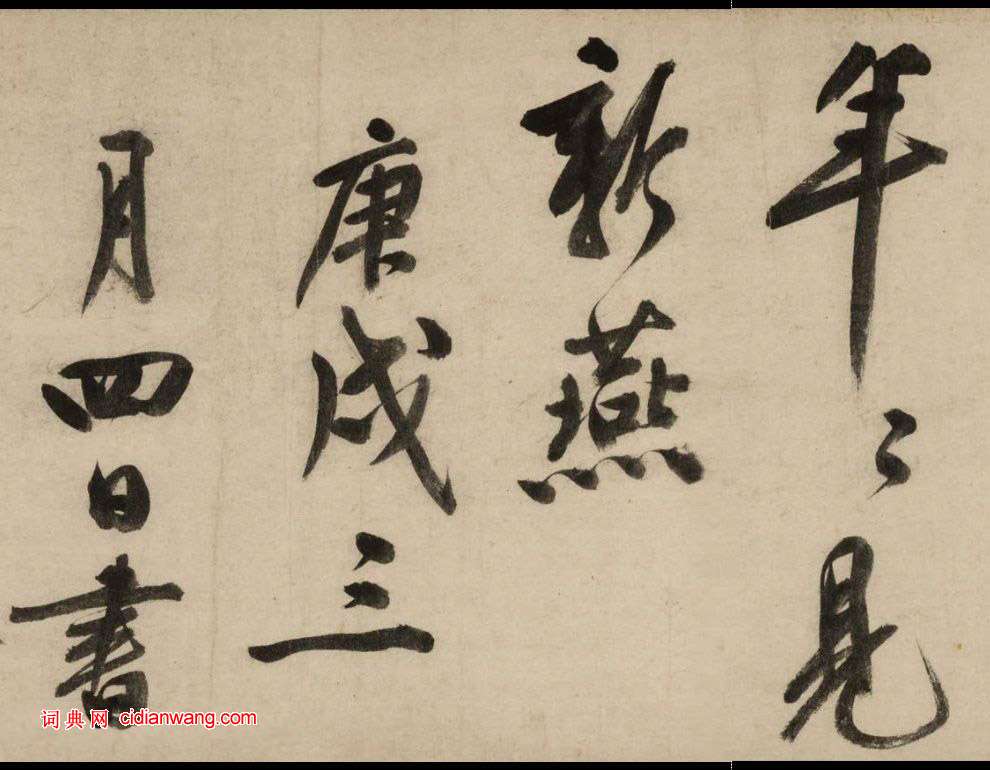 年〻見
新燕
庚戌三
月四日書
词典网 cidianwang.com